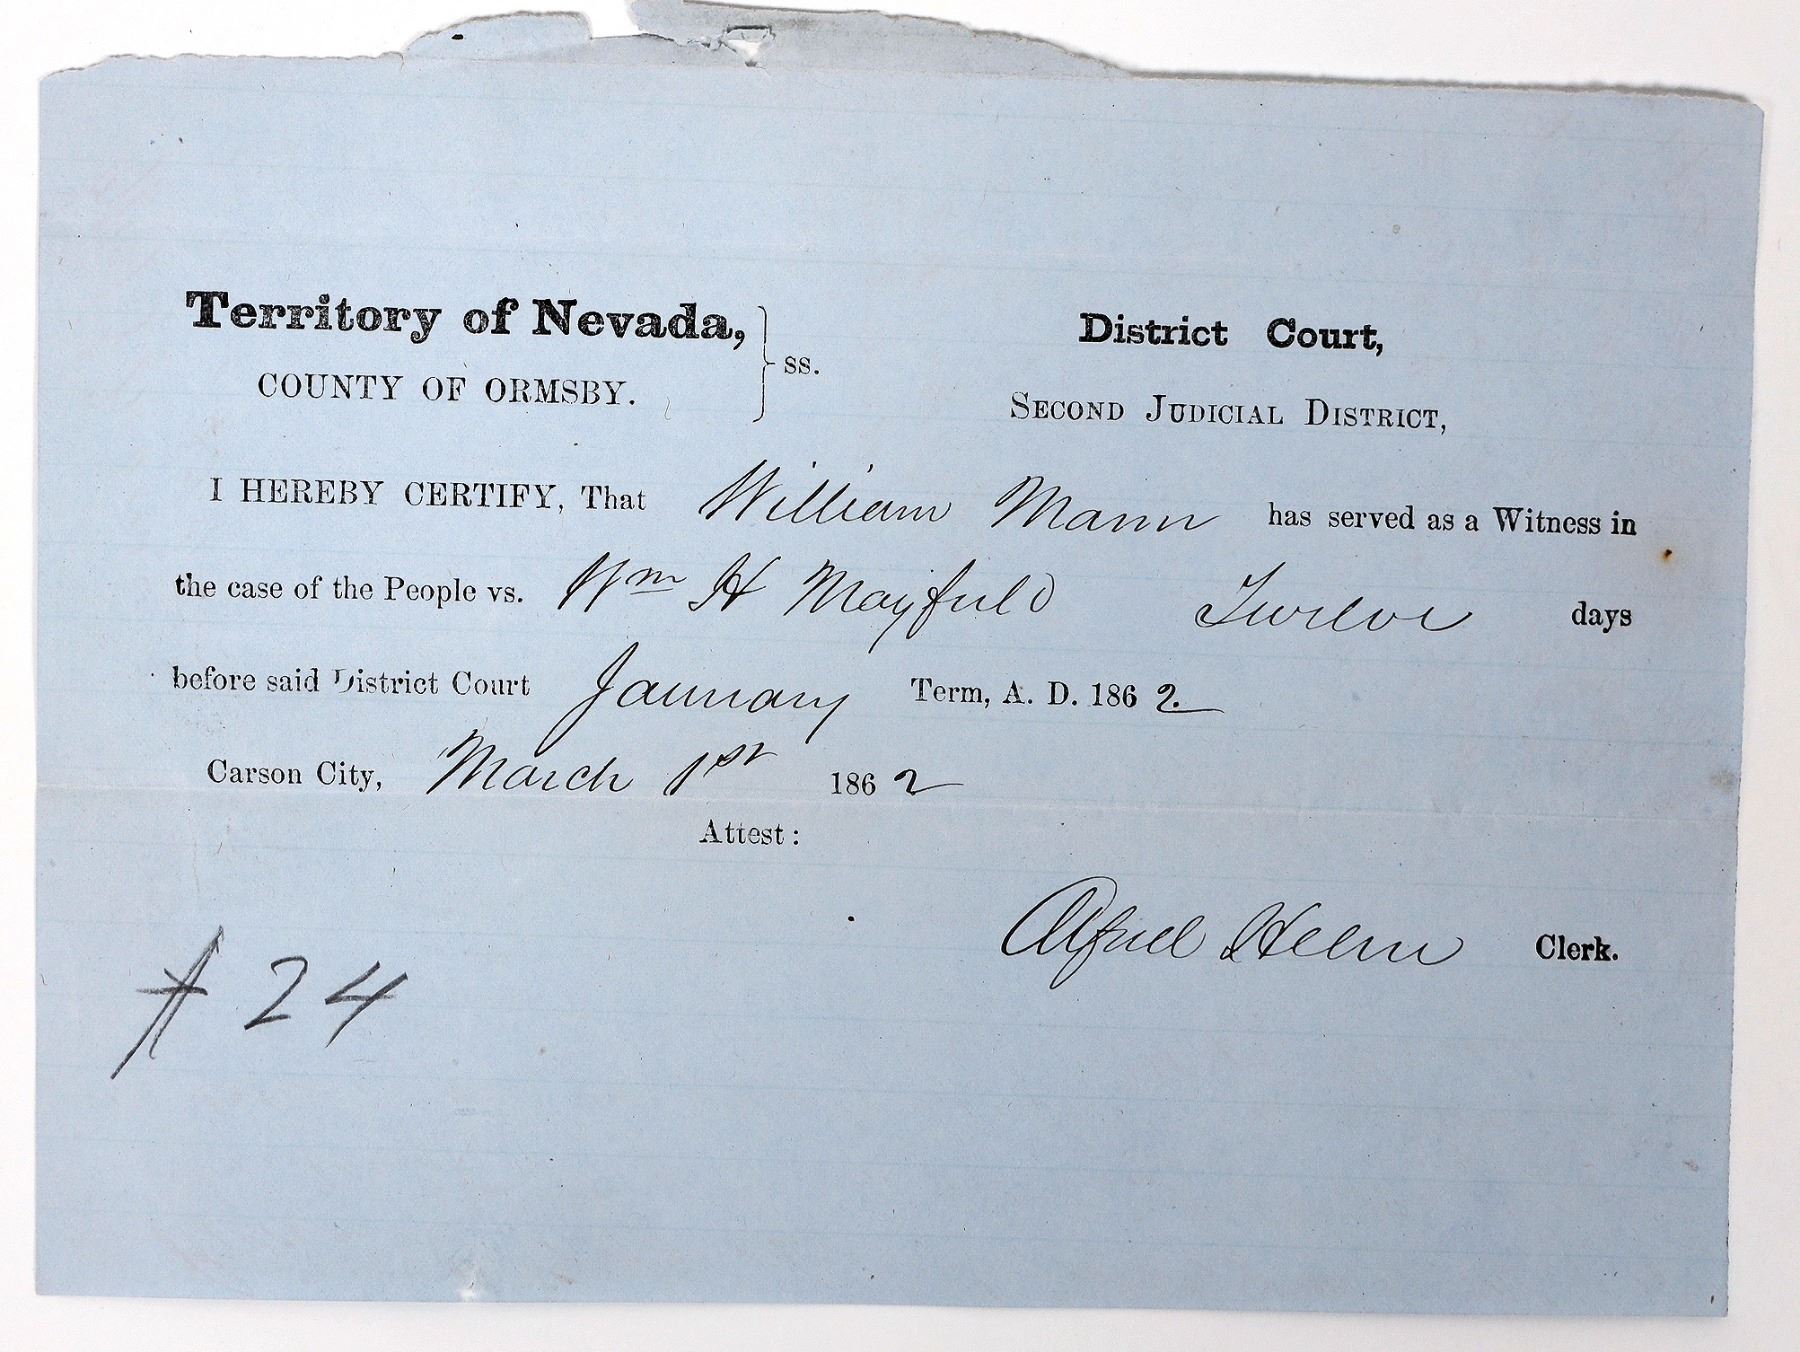 Territory of Nevada, } ss. District Court,
COUNTY OF ORMSBY. SECOND JUDICIAL DISTRICT,
I HEREBY CERTIFY, That William Mann has served as a Witness in
the case of the People vs. Wm H Mayfield Twelve days
before said District Court January Term, A. D. 1862.
Carson City, March 1st 1862
Attest:
Alfred Helm Clerk.
24